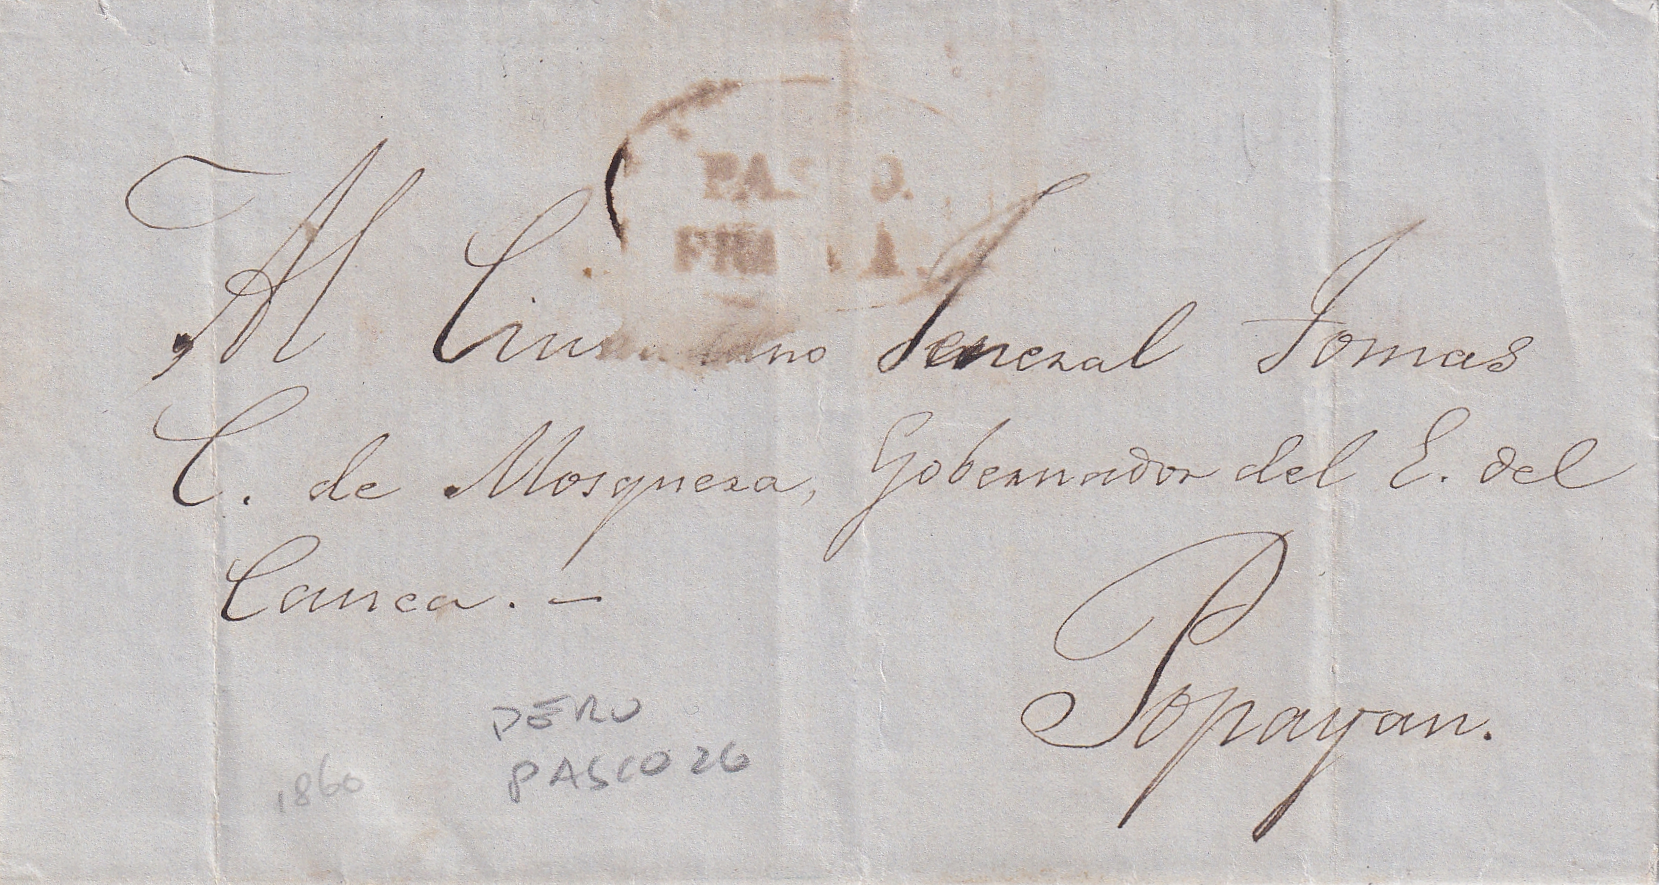 PASTO.
FRANCA.
Al Ciudadano Jeneral Tomas
C. de Mosquera, Gobernador del E. del
Cauca. —
Popayan.
PERU
PASCO 26
1860